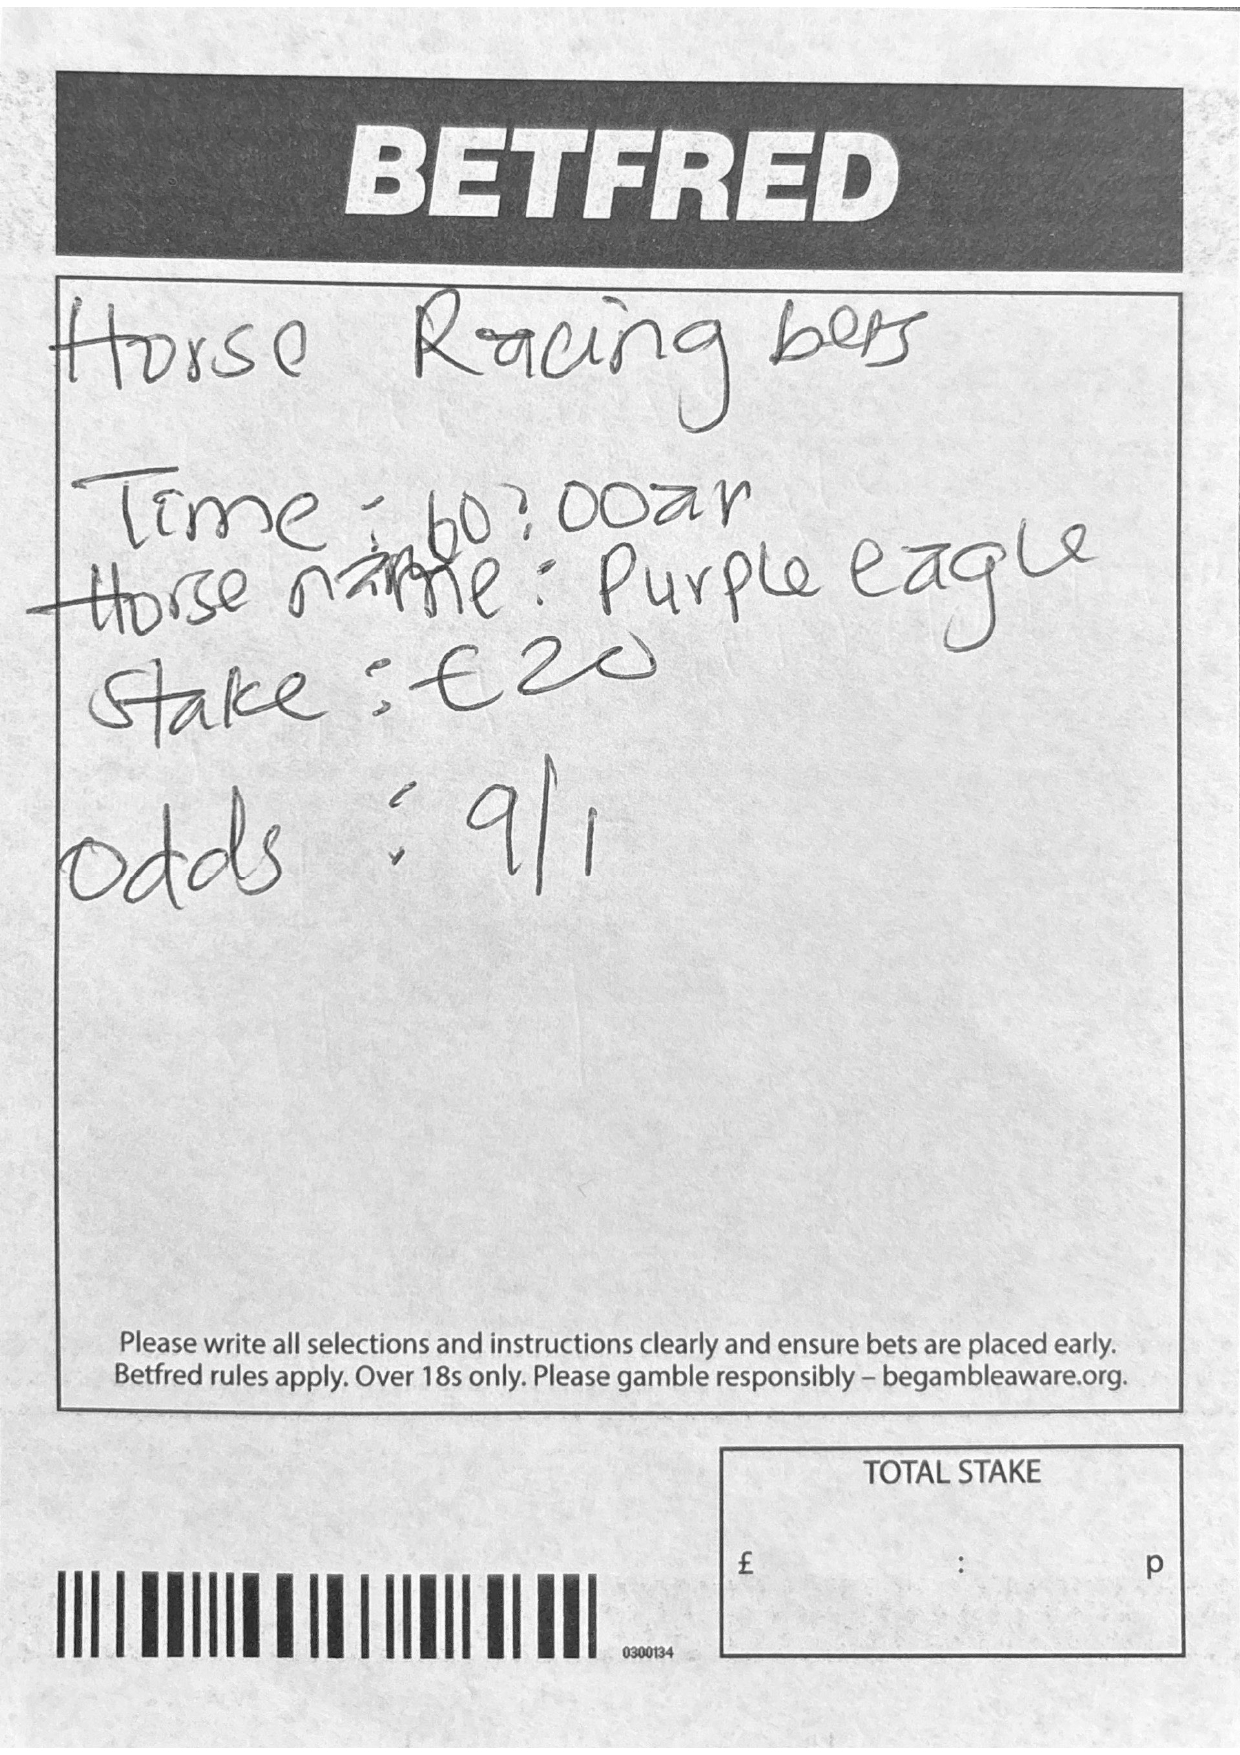 BETFRED
Horse Racing bets
Time : 10:00am
Horse name : Purple eagle
Stake : €20
Odds : 9/1
Please write all selections and instructions clearly and ensure bets are placed early.
Betfred rules apply. Over 18s only. Please gamble responsibly – begambleaware.org.
TOTAL STAKE
£ : p
0300134